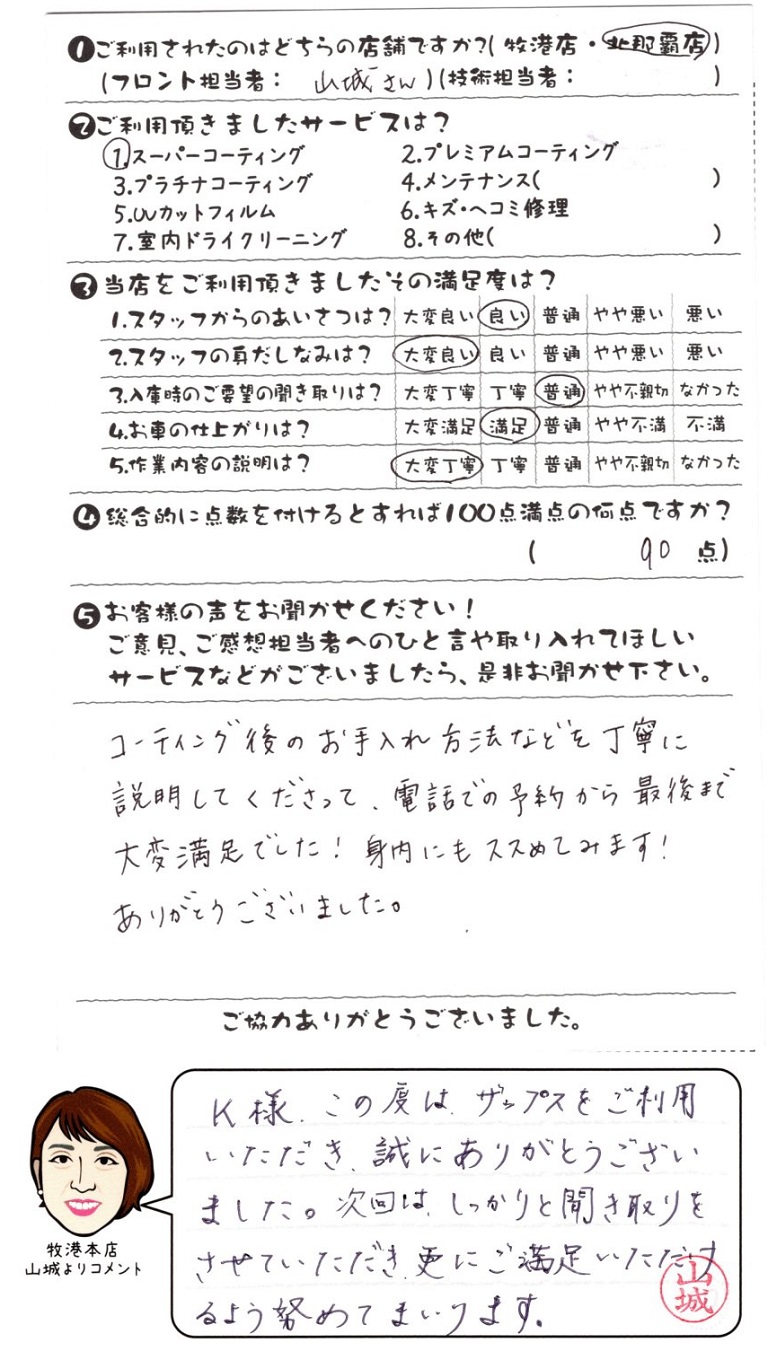 ❶ご利用されたのはどちらの店舗ですか?(牧港店・北那覇店)
(フロント担当者: 山城さん)(技術担当者: )
❷ご利用頂きましたサービスは?
1.スーパーコーティング 2.プレミアムコーティング
3.プラチナコーティング 4.メンテナンス( )
5.UVカットフィルム 6.キズ・ヘコミ修理
7.室内ドライクリーニング 8.その他( )
❸当店をご利用頂きましたその満足度は?
1.スタッフからのあいさつは? 大変良い 良い 普通 やや悪い 悪い
2.スタッフの身だしなみは? 大変良い 良い 普通 やや悪い 悪い
3.入庫時のご要望の聞き取りは? 大変丁寧 丁寧 普通 やや不親切 なかった
4.お車の仕上がりは? 大変満足 満足 普通 やや不満 不満
5.作業内容の説明は? 大変丁寧 丁寧 普通 やや不親切 なかった
❹総合的に点数を付けるとすれば100点満点の何点ですか?
( 90 点)
❺お客様の声をお聞かせください!
ご意見、ご感想担当者へのひと言や取り入れてほしい
サービスなどがございましたら、是非お聞かせ下さい。
コーティング後のお手入れ方法などを丁寧に
説明してくださって、電話での予約から最後まで
大変満足でした!身内にもススめてみます!
ありがとうございました。
ご協力ありがとうございました。
K様、この度は、ザップスをご利用
いただき、誠にありがとうござい
ました。次回は、しっかりと聞き取りを
させていただき、更にご満足いただけ
るよう努めてまいります。
山城
牧港本店
山城よりコメント